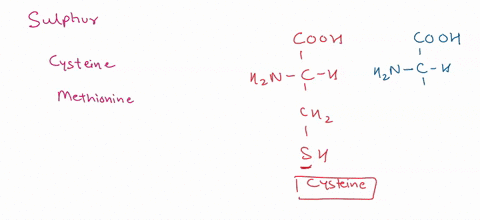 Sulphur
Cysteine
Methionine
COOH
H₂N-C-H
CH₂
SH
Cysteine
COOH
H₂N-C-H